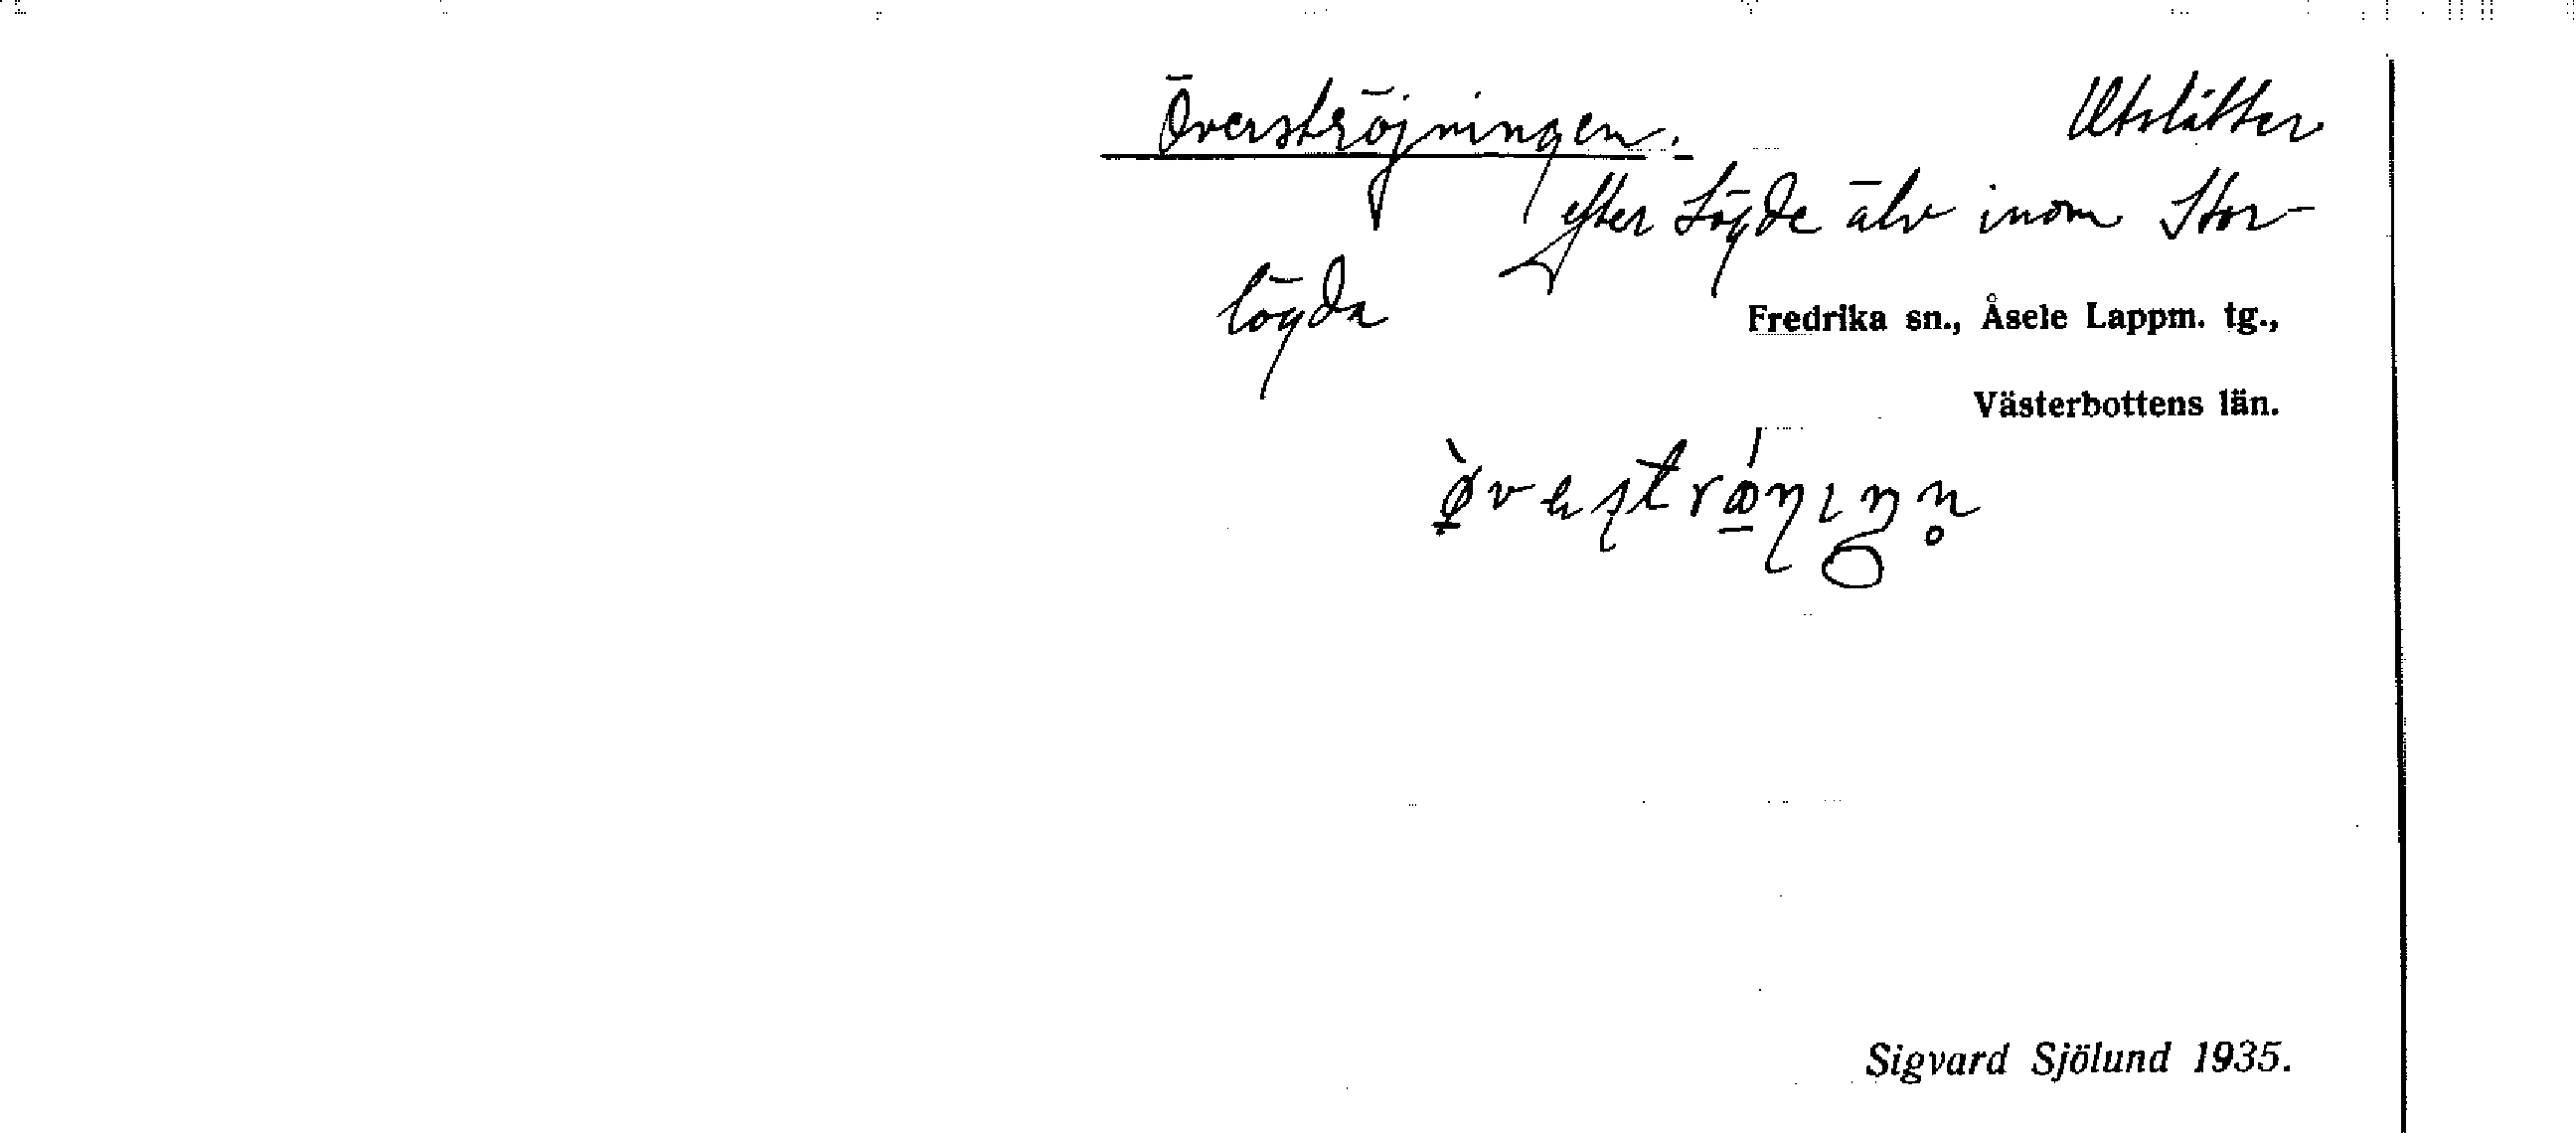 Överströjningen. Utslåtter
efter Lögde älv inom Stor-
lögda
Fredrika sn., Åsele Lappm. tg.,
Västerbottens län.
Sigvard Sjölund 1935.